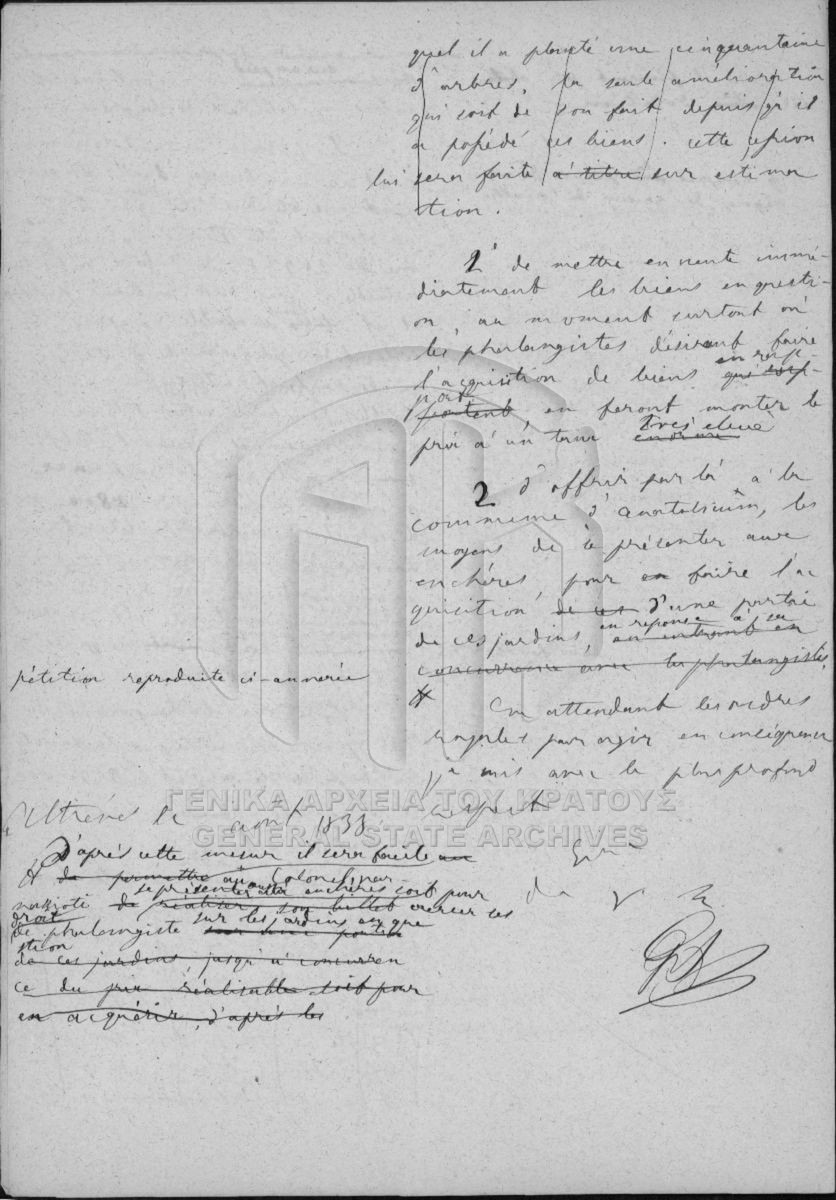 quel il a planté une cinquantaine
d'arbres, la seule amélioration
qui soit de son fait depuis qu'il
a possédé ces biens. cette cession
lui sera faite à titre sur estima
tion.
1° de mettre en vente immé-
diatement les biens en questi-
on, au moment surtout où
les phalangistes désirant faire
l'acquisition de biens
en rap-
port
en feront monter le
prix à un taux
très élevé
2 d'offrir par là à la
commune d'
les
moyens de se présenter aux
enchères, pour en faire l'a
quisition de ces d'une partie
de ces jardins,
en réponse à sa
en entrant en
concurrence avec les phalangistes.
pétition reproduite ci-annexée
En attendant les ordres
royales pour agir en conséquence
je suis avec le plus profond
respect
Athènes le août 1838
D'après cette mesure il sera facile au
de permettre au Colonel
se présenter aux enchères soit pour
de réaliser son billet exercer ses
droit
de phalangiste
sur les jardins en que
stion
de ces jardins, jusqu'à concurren
ce du prix réalisable soit pour
en acquérir, d'après les
ΓΕΝΙΚΑ ΑΡΧΕΙΑ ΤΟΥ ΚΡΑΤΟΥΣ
GENERAL STATE ARCHIVES